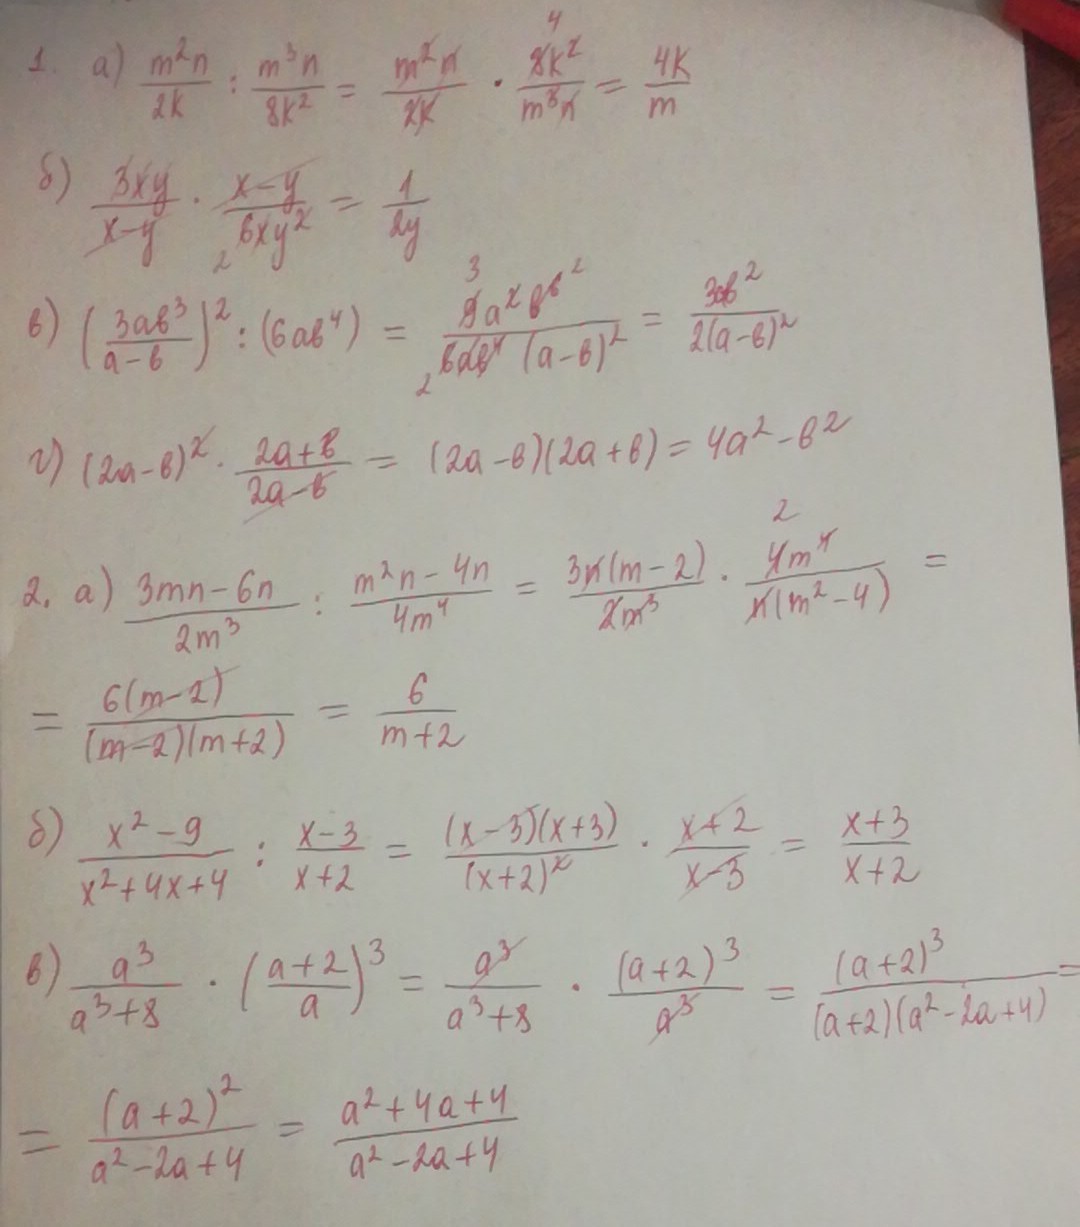 1. а) m²n/2k : m³n/8k² = m²n/2k · 8k²/m³n = 4k/m
б) 3xy/x-y · x-y/6xy² = 1/2y
в) (3ab³/a-b)² : (6ab⁴) = 9a²b⁶/6ab⁴(a-b)² = 3ab²/2(a-b)²
г) (2a-b)² · 2a+b/2a-b = (2a-b)(2a+b) = 4a²-b²
2. а) 3mn-6n/2m³ : m²n-4n/4m⁴ = 3n(m-2)/2m³ · 4m⁴/n(m²-4) =
= 6(m-2)/(m-2)(m+2) = 6/m+2
б) x²-9/x²+4x+4 : x-3/x+2 = (x-3)(x+3)/(x+2)² · x+2/x-3 = x+3/x+2
в) a³/a³+8 · (a+2/a)³ = a³/a³+8 · (a+2)³/a³ = (a+2)³/(a+2)(a²-2a+4) =
= (a+2)²/a²-2a+4 = a²+4a+4/a²-2a+4